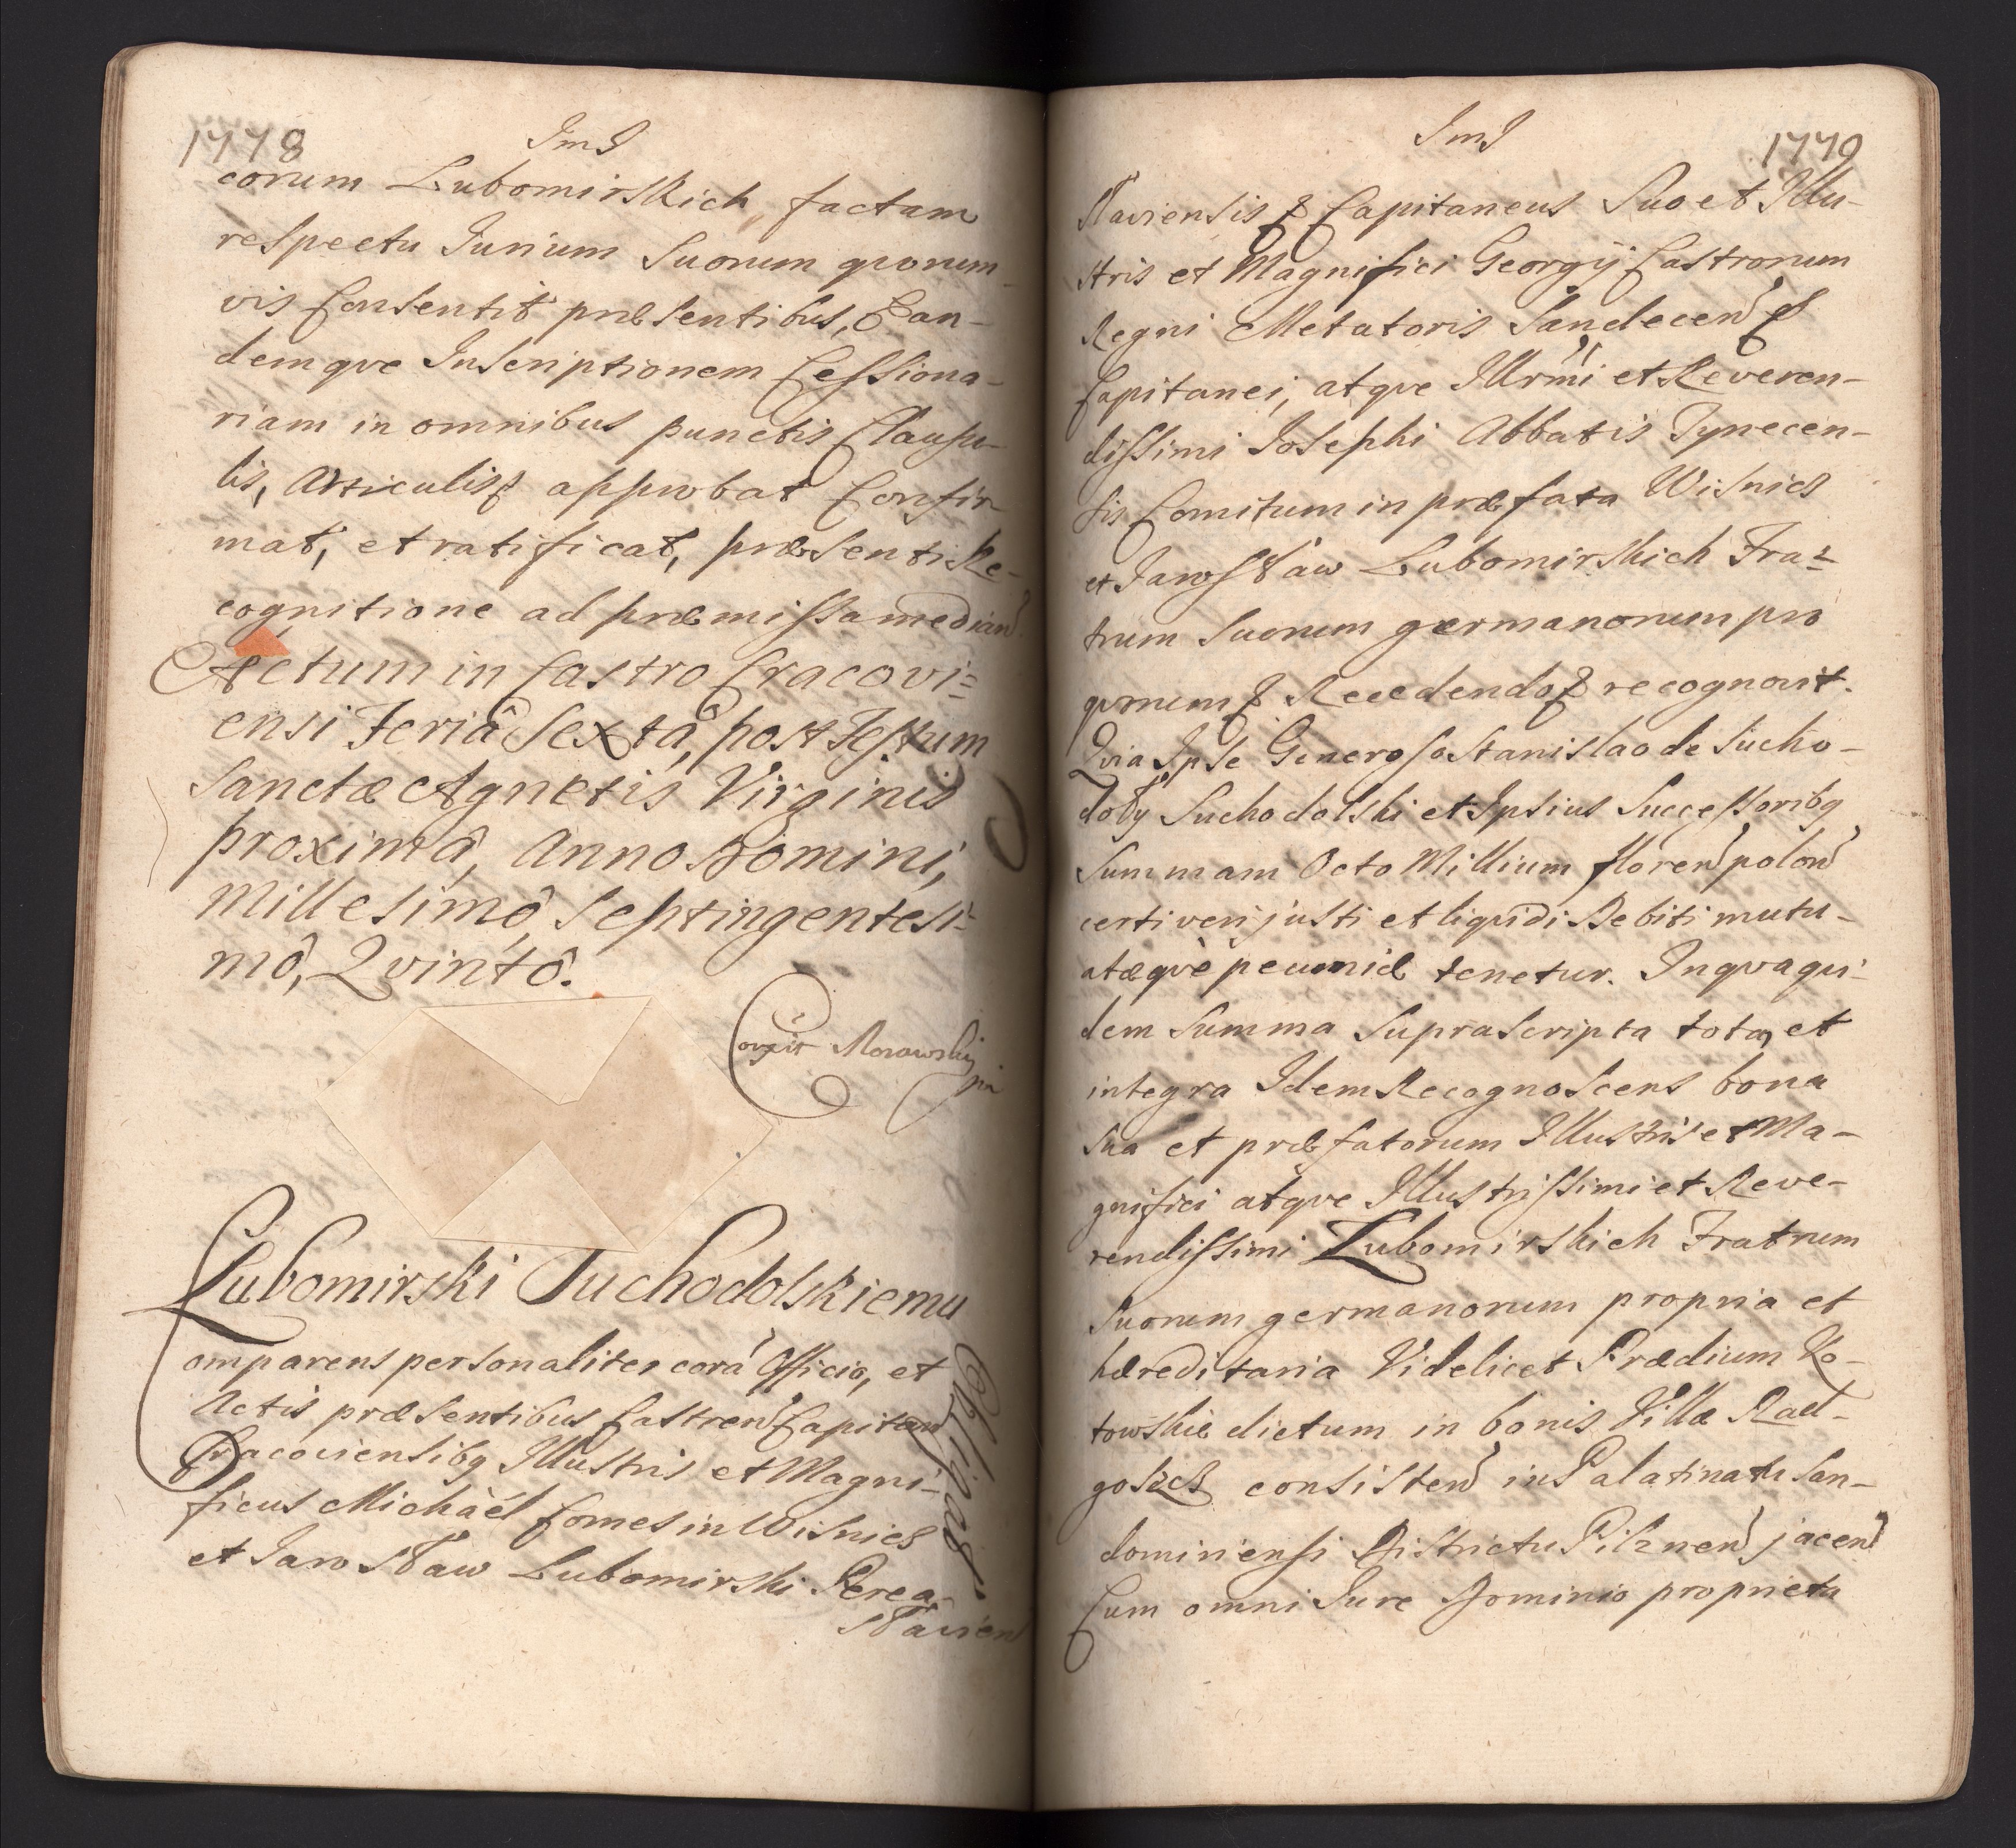 1778
JmJ
corum Lubomirskich factam
respectu Jurium Suorum quorum-
vis Consentit præsentibus, Ean-
demqve Inscriptionem Cessiona-
riam in omnibus punctis Clausu-
lis, Articulisq approbat Confir
mat, et ratificat, præsenti Re-
cognitione ad præmissa median
Actum in Castro Cracovi=
ensi Feriâ Sextâ, post Festum
Sanctæ Agnetis Virginis
proximâ, Anno Domini,
Millesimô Septingentesi-
mô, Qvintô.
Morawski
Lubomirski Suchodolskiemu
Obligat
omparens personaliter corá Officio, et
Actis præsentibus Castren Capitan
Cracoviensibq Illustris et Magni-
ficus Michàél Comes in Wisnicz
et Jarosław Lubomirski Perea-
słavien
1779
JmJ
slaviensis & Capitaneus Suo et Illu-
stris et Magnifici Georgij Castrorum
Regni Metatoris Sandecen &
Capitanei, atqve Illrmi et Reveren-
dissimi Josephi Abbatis Tynecen-
sis Comitum in præfata Wisnicz
et Jarosław Lubomirskich Fra-
trum Suorum germanorum pro
qvorum Recedendo recognovit.
Qvia Ipse Generoso Stanislao de Sucho-
doły Suchodolski et Ipsius Successoribq
Summam Octo Millium floren polon
certi veri justi et liqvidi Debiti mutu-
atæqvè pecuniæ tenetur. In qva qvi-
dem Summa Suprascripta tota, et
integra Idem Recognoscens bona
sua et præfatorum Illustris et Ma-
gnifici atqve Illustrissimi et Reve-
rendissimi Lubomirskich Fratrum
Suorum germanorum propria et
hæreditaria Videlicet Prædium Ko-
towskie dictum in bonis Villæ Rad-
goszcz consisten in Palatinatu San-
domiriensi Districtu Pilznen jacen
Cum omni Jure Dominio proprieta